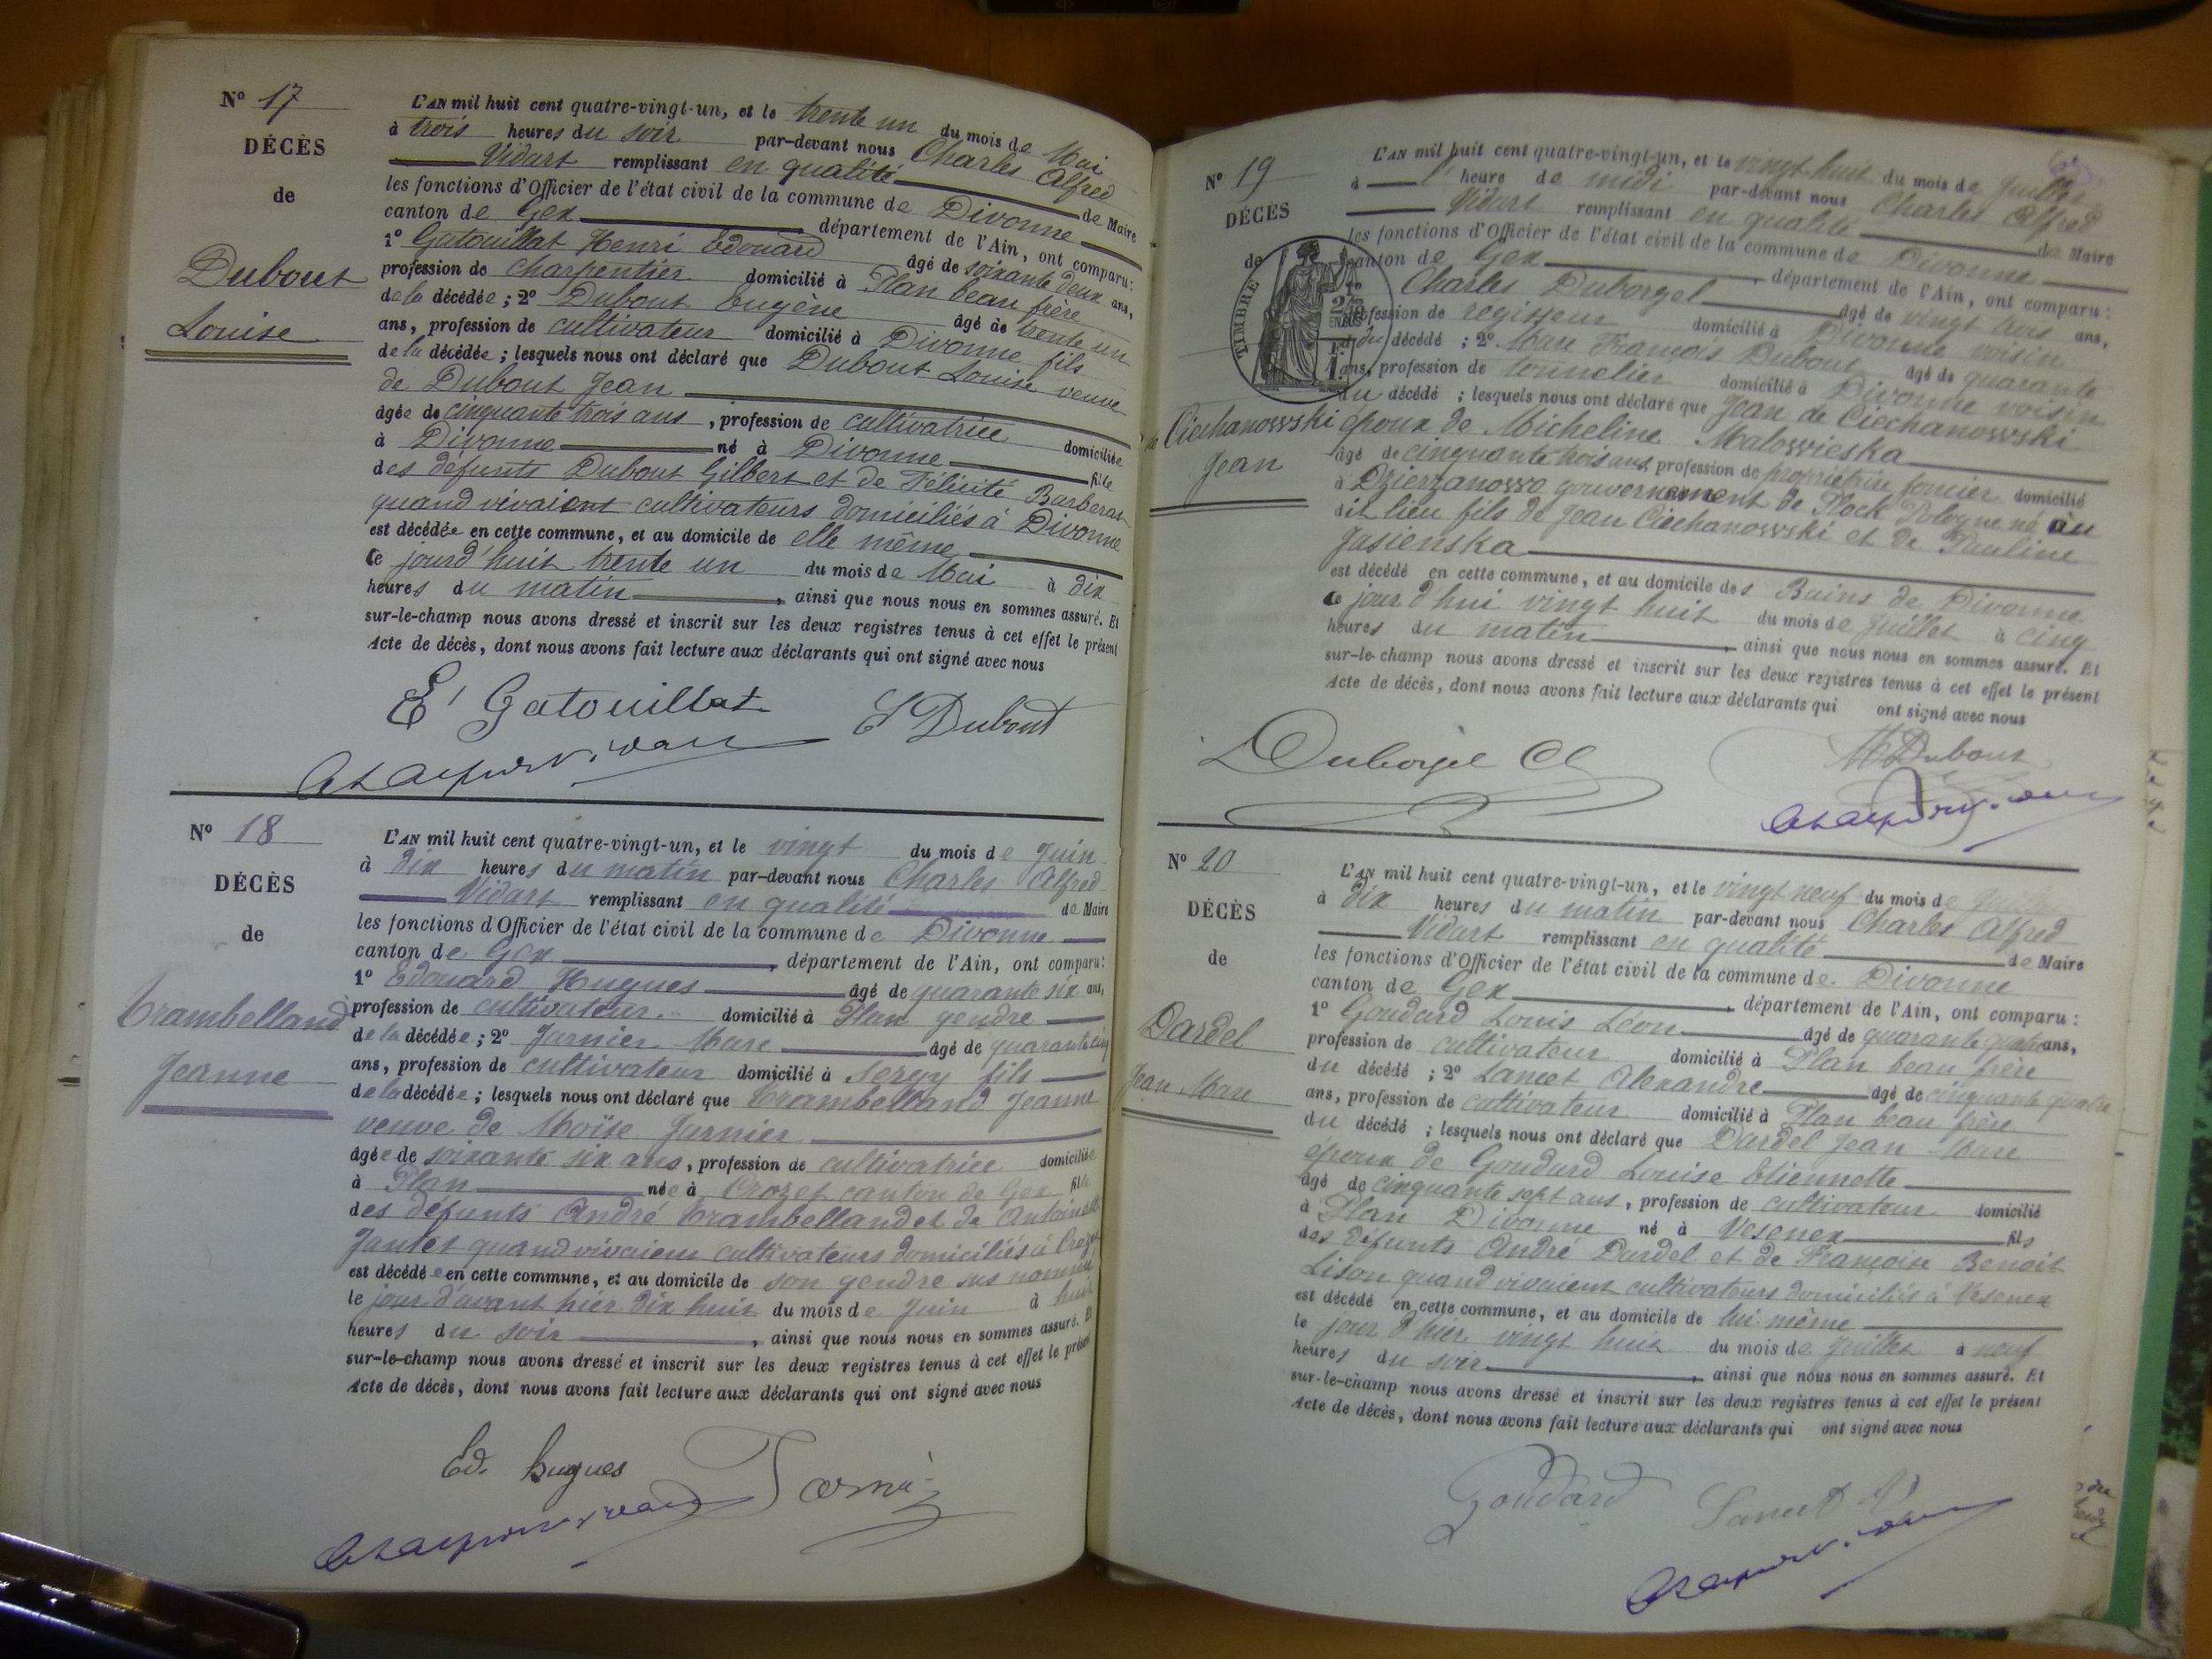 N° 17
DÉCÈS
de
Dubout
Louise
L'AN mil huit cent quatre-vingt-un, et le trente un du mois de Mai
à trois heures du soir par-devant nous Charles Alfred
Vidart remplissant en qualité de Maire
les fonctions d'Officier de l'état civil de la commune de Divonne
canton de Gex, département de l'Ain, ont comparu:
1° Gatouillat Henri Edouard âgé de soixante deux ans,
profession de charpentier domicilié à Plan beau frère
de la décédée; 2° Dubout Eugène âgé de trente un
ans, profession de cultivateur domicilié à Divonne fils
de la décédée; lesquels nous ont déclaré que Dubout Louise veuve
de Dubout Jean
âgée de cinquante trois ans, profession de cultivatrice domiciliée
à Divonne né à Divonne fille
des défunts Dubout Gilbert et de Félicité Barberat
quand vivaient cultivateurs domiciliés à Divonne
est décédée en cette commune, et au domicile de elle même
ce jourd'huit trente un du mois de Mai à dix
heures du matin, ainsi que nous nous en sommes assuré. Et
sur-le-champ nous avons dressé et inscrit sur les deux registres tenus à cet effet le présent
Acte de décès, dont nous avons fait lecture aux déclarants qui ont signé avec nous
E Gatouillat E Dubout
N° 18
DÉCÈS
de
Crambelland
Jeanne
L'AN mil huit cent quatre-vingt-un, et le vingt du mois de Juin
à dix heures du matin par-devant nous Charles Alfred
Vidart remplissant en qualité de Maire
les fonctions d'Officier de l'état civil de la commune de Divonne
canton de Gex, département de l'Ain, ont comparu:
1° Edouard Hugues âgé de quarante six ans,
profession de cultivateur domicilié à Plan gendre
de la décédée; 2° Jarnier Marc âgé de quarante cinq
ans, profession de cultivateur domicilié à Sergy fils
de la décédée; lesquels nous ont déclaré que Crambelland Jeanne
veuve de Moïse Jarnier
âgée de soixante six ans, profession de cultivatrice domiciliée
à Plan née à Crozet canton de Gex fille
des défunts André Crambelland et de Antoinette
Jantet quand vivaient cultivateurs domiciliés à Crozet
est décédée en cette commune, et au domicile de son gendre sus nommé
le jour d'avant hier dix huit du mois de Juin à huit
heures du soir, ainsi que nous nous en sommes assuré. Et
sur-le-champ nous avons dressé et inscrit sur les deux registres tenus à cet effet le présent
Acte de décès, dont nous avons fait lecture aux déclarants qui ont signé avec nous
Ed. hugues
N° 19
DÉCÈS
de
de Ciechanowski
Jean
TIMBRE
L'AN mil huit cent quatre-vingt-un, et le vingt huit du mois de Juillet
à l' heure de midi par-devant nous Charles Alfred
Vidart remplissant en qualité de Maire
les fonctions d'Officier de l'état civil de la commune de Divonne
canton de Gex, département de l'Ain, ont comparu:
1° Charles Duborgel âgé de vingt trois ans,
profession de régisseur domicilié à Divonne voisin
du décédé; 2° Marc François Dubout âgé de quarante
ans, profession de tonnelier domicilié à Divonne voisin
du décédé; lesquels nous ont déclaré que Jean de Ciechanowski
époux de Micheline Malowieska
âgé de cinquante trois ans, profession de propriétaire foncier domicilié
à Dzierzanowo gouvernement de Plock Pologne né au
dit lieu fils de Jean Ciechanowski et de Pauline
Jasienska
est décédé en cette commune, et au domicile des Bains de Divonne
ce jour d'hui vingt huit du mois de Juillet à cinq
heures du matin, ainsi que nous nous en sommes assuré. Et
sur-le-champ nous avons dressé et inscrit sur les deux registres tenus à cet effet le présent
Acte de décès, dont nous avons fait lecture aux déclarants qui ont signé avec nous
Duborgel Ch M Dubout
N° 20
DÉCÈS
de
Dardel
Jean Marc
L'AN mil huit cent quatre-vingt-un, et le vingt neuf du mois de Juillet
à dix heures du matin par-devant nous Charles Alfred
Vidart remplissant en qualité de Maire
les fonctions d'Officier de l'état civil de la commune de Divonne
canton de Gex, département de l'Ain, ont comparu:
1° Goudard Louis Léon âgé de quarante quatre ans,
profession de cultivateur domicilié à Plan beau frère
du décédé; 2° Lancet Alexandre âgé de cinquante quatre
ans, profession de cultivateur domicilié à Plan beau frère
du décédé; lesquels nous ont déclaré que Dardel Jean Marc
époux de Goudard Louise Etiennette
âgé de cinquante sept ans, profession de cultivateur domicilié
à Plan Divonne né à Vesenex fils
des défunts André Dardel et de Françoise Benoit
Lison quand vivaient cultivateurs domiciliés à Vesenex
est décédé en cette commune, et au domicile de lui même
le jour d'hier vingt huit du mois de Juillet à neuf
heures du soir, ainsi que nous nous en sommes assuré. Et
sur-le-champ nous avons dressé et inscrit sur les deux registres tenus à cet effet le présent
Acte de décès, dont nous avons fait lecture aux déclarants qui ont signé avec nous
Goudard Lancet A